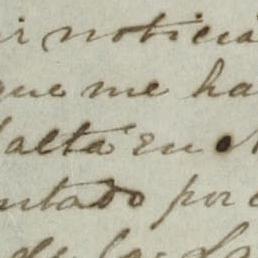 ir noticia
que me ha
falta en
ntado por
de la